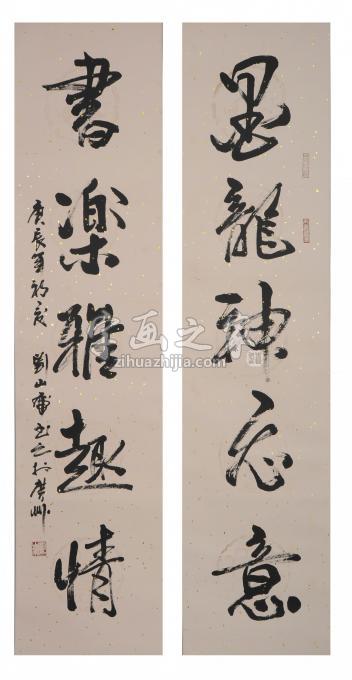 墨龍神意
書楽雅趣情
庚辰年初夏 劉山书之於廣州
字画之家
zihuazhijia.com